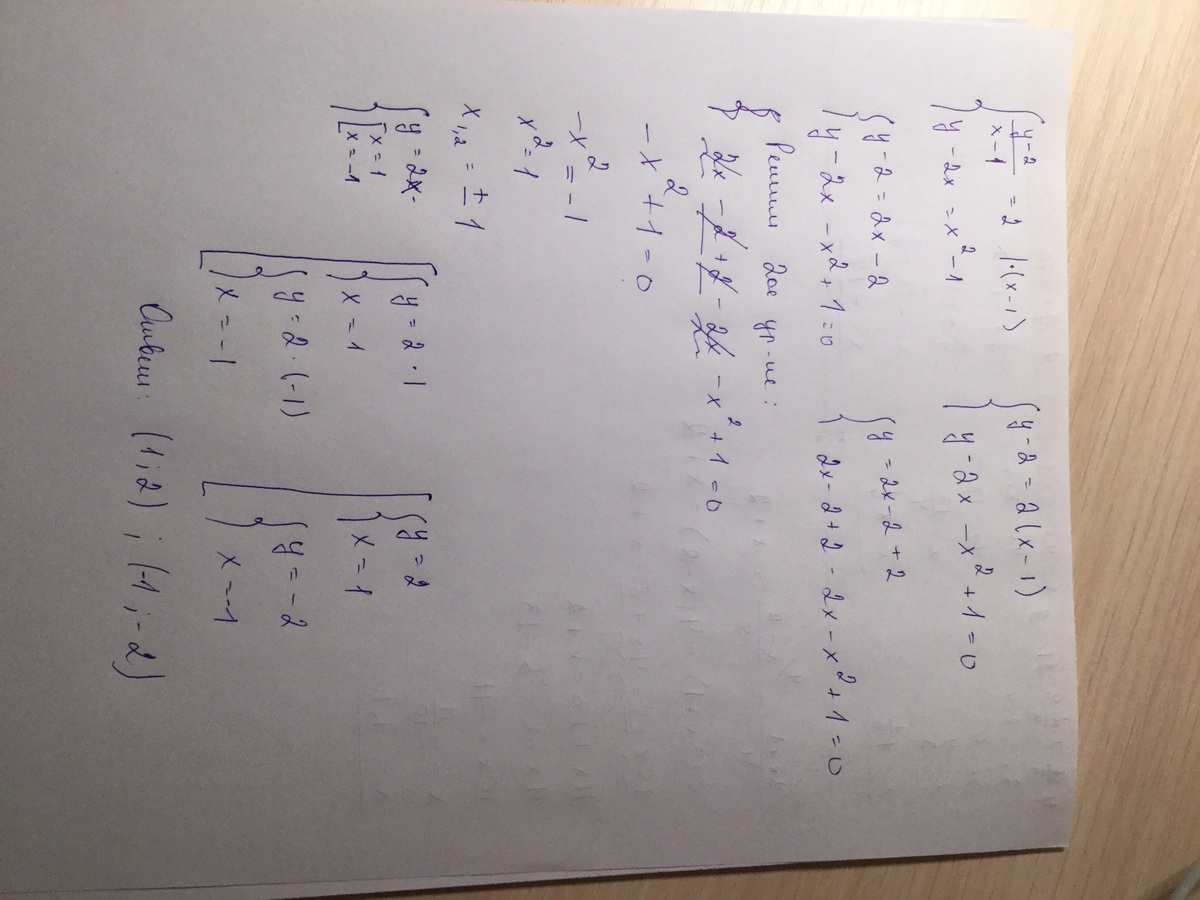 { y-2/x-1 = 2 |·(x-1)
{ y-2x = x²-1
{ y-2 = 2(x-1)
{ y-2x-x²+1=0
{ y-2 = 2x-2
{ y-2x-x²+1=0
{ y = 2x-2+2
{ 2x-2+2-2x-x²+1=0
Решим 2ое ур-ие:
2x-2+2-2x-x²+1=0
-x²+1=0
-x²=-1
x²=1
x1,2 = ±1
{ y = 2x
{ [ x=1
[ x=-1
[ { y = 2·1
{ x = 1
{ y = 2·(-1)
{ x = -1
[ { y = 2
{ x = 1
{ y = -2
{ x = -1
Ответ: (1;2); (-1;-2)